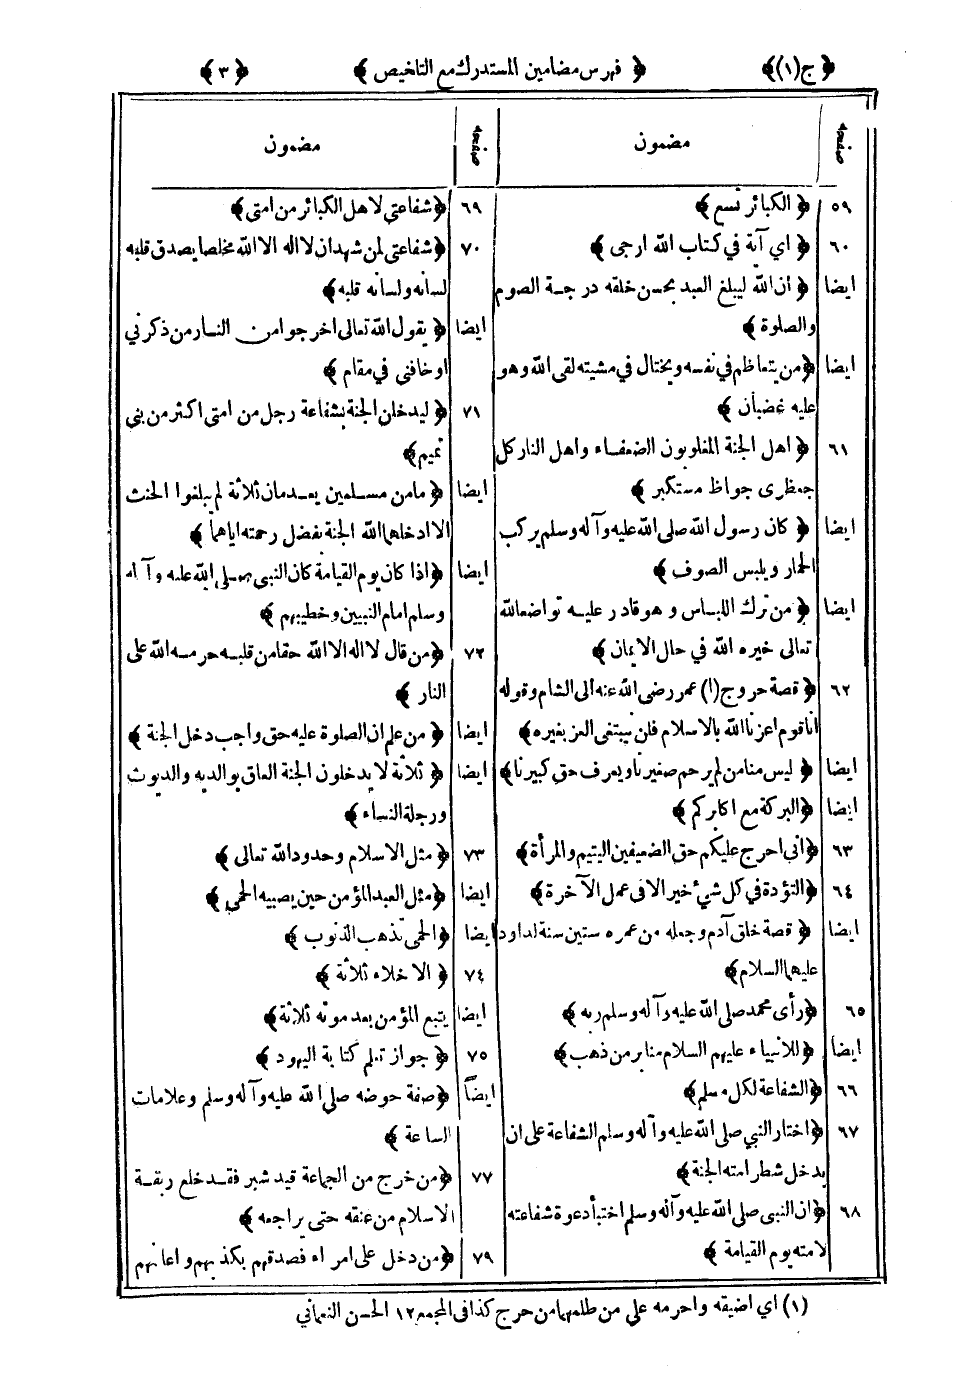 ﴿ ج(١)﴾ ﴿ فهرس مضامين المستدرك مع التلخيص ﴾ ﴿ ٣ ﴾
صفحه مضمون
٥٩ ﴿ الكبائر تسع ﴾
٦٠ ﴿ اي آية في كتاب الله ارجى ﴾
ايضا ﴿ ان الله ليبلغ العبد بحسن خلقه درجة الصوم
والصلوة ﴾
ايضا ﴿من يتعاظم في نفسه ويختال في مشيته لقى الله وهو
عليه غضبان ﴾
٦١ ﴿ اهل الجنة المغلوبون الضعفاء واهل النار كل
جعظرى جواظ مستكبر ﴾
ايضا ﴿ كان رسول الله صلى الله عليه وآله وسلم يركب
الحمار ويلبس الصوف ﴾
ايضا ﴿ من ترك اللباس و هو قادر عليه تواضعالله
تعالى خيره الله في حال الايمان ﴾
٦٢ ﴿ قصة خروج (١) عمر رضى الله عنه الى الشام وقوله
اناقوم اعزنا الله بالاسلام فلن نبتغى العز بغيره﴾
ايضا ﴿ ليس منا من لم يرحم صغيرنا ويعرف حق كبيرنا﴾
ايضا ﴿البركة مع اكابركم ﴾
٦٣ ﴿انى احرج عليكم حق الضعيفين اليتيم والمرأة﴾
٦٤ ﴿التؤدة في كل شيء خير الا في عمل الآخرة ﴾
ايضا ﴿ قصة خلق آدم وجعله من عمره ستين سنة لداود
عليهما السلام﴾
٦٥ ﴿رأى محمد صلى الله عليه وآله وسلم ربه ﴾
ايضا ﴿للانبياء عليهم السلام منابر من ذهب﴾
٦٦ ﴿الشفاعة لكل مسلم﴾
٦٧ ﴿اختار النبي صلى الله عليه وآله وسلم الشفاعة على ان
يدخل شطر امته الجنة﴾
٦٨ ﴿ان النبى صلى الله عليه وآله وسلم اختبأ دعوة شفاعته
لامته يوم القيامة ﴾
صفحه مضمون
٦٩ ﴿شفاعتي لاهل الكبائر من امتى ﴾
٧٠ ﴿شفاعتى لمن شهد ان لا اله الا الله مخلصا يصدق قلبه
لسانه ولسانه قلبه﴾
ايضا ﴿ يقول الله تعالى اخرجوا من النار من ذكرني
اوخافني في مقام ﴾
٧١ ﴿ ليدخلن الجنة بشفاعة رجل من امتى اكثر من بنى
تميم﴾
ايضا ﴿ مامن مسلمين يعدمان ثلاثة لم يبلغوا الحنث
الا ادخلهما الله الجنة بفضل رحمته اياهما ﴾
ايضا ﴿اذا كان يوم القيامة كان النبى صلى الله عليه وآله
وسلم امام النبيين وخطيبهم ﴾
٧٢ ﴿من قال لا اله الا الله حقا من قلبه حرمه الله على
النار ﴾
ايضا ﴿ من علم ان الصلوة عليه حق واجب دخل الجنة ﴾
ايضا ﴿ ثلاثة لا يدخلون الجنة العاق بوالديه والديوث
ورجلة النساء ﴾
٧٣ ﴿ مثل الاسلام وحدود الله تعالى ﴾
ايضا ﴿مثل العبد المؤمن حين يصيبه الحمى ﴾
ايضا ﴿الحمى تذهب الذنوب ﴾
٧٤ ﴿ الاخلاء ثلاثة ﴾
ايضا يتبع المؤمن بعد موته ثلاثة﴾
٧٥ ﴿ جواز تعلم كتابة اليهود ﴾
ايضاً ﴿صفة حوضه صلى الله عليه وآله وسلم وعلامات
الساعة ﴾
٧٧ ﴿من خرج من الجماعة قيد شبر فقد خلع ربقة
الاسلام من عنقه حتى يراجعه ﴾
٧٩ ﴿من دخل على امراء فصدقهم بكذبهم واعانهم
(١) اي اضيقه واحرمه على من ظلمهما من حرج كذا في المجمع ١٢ الحسن النعماني